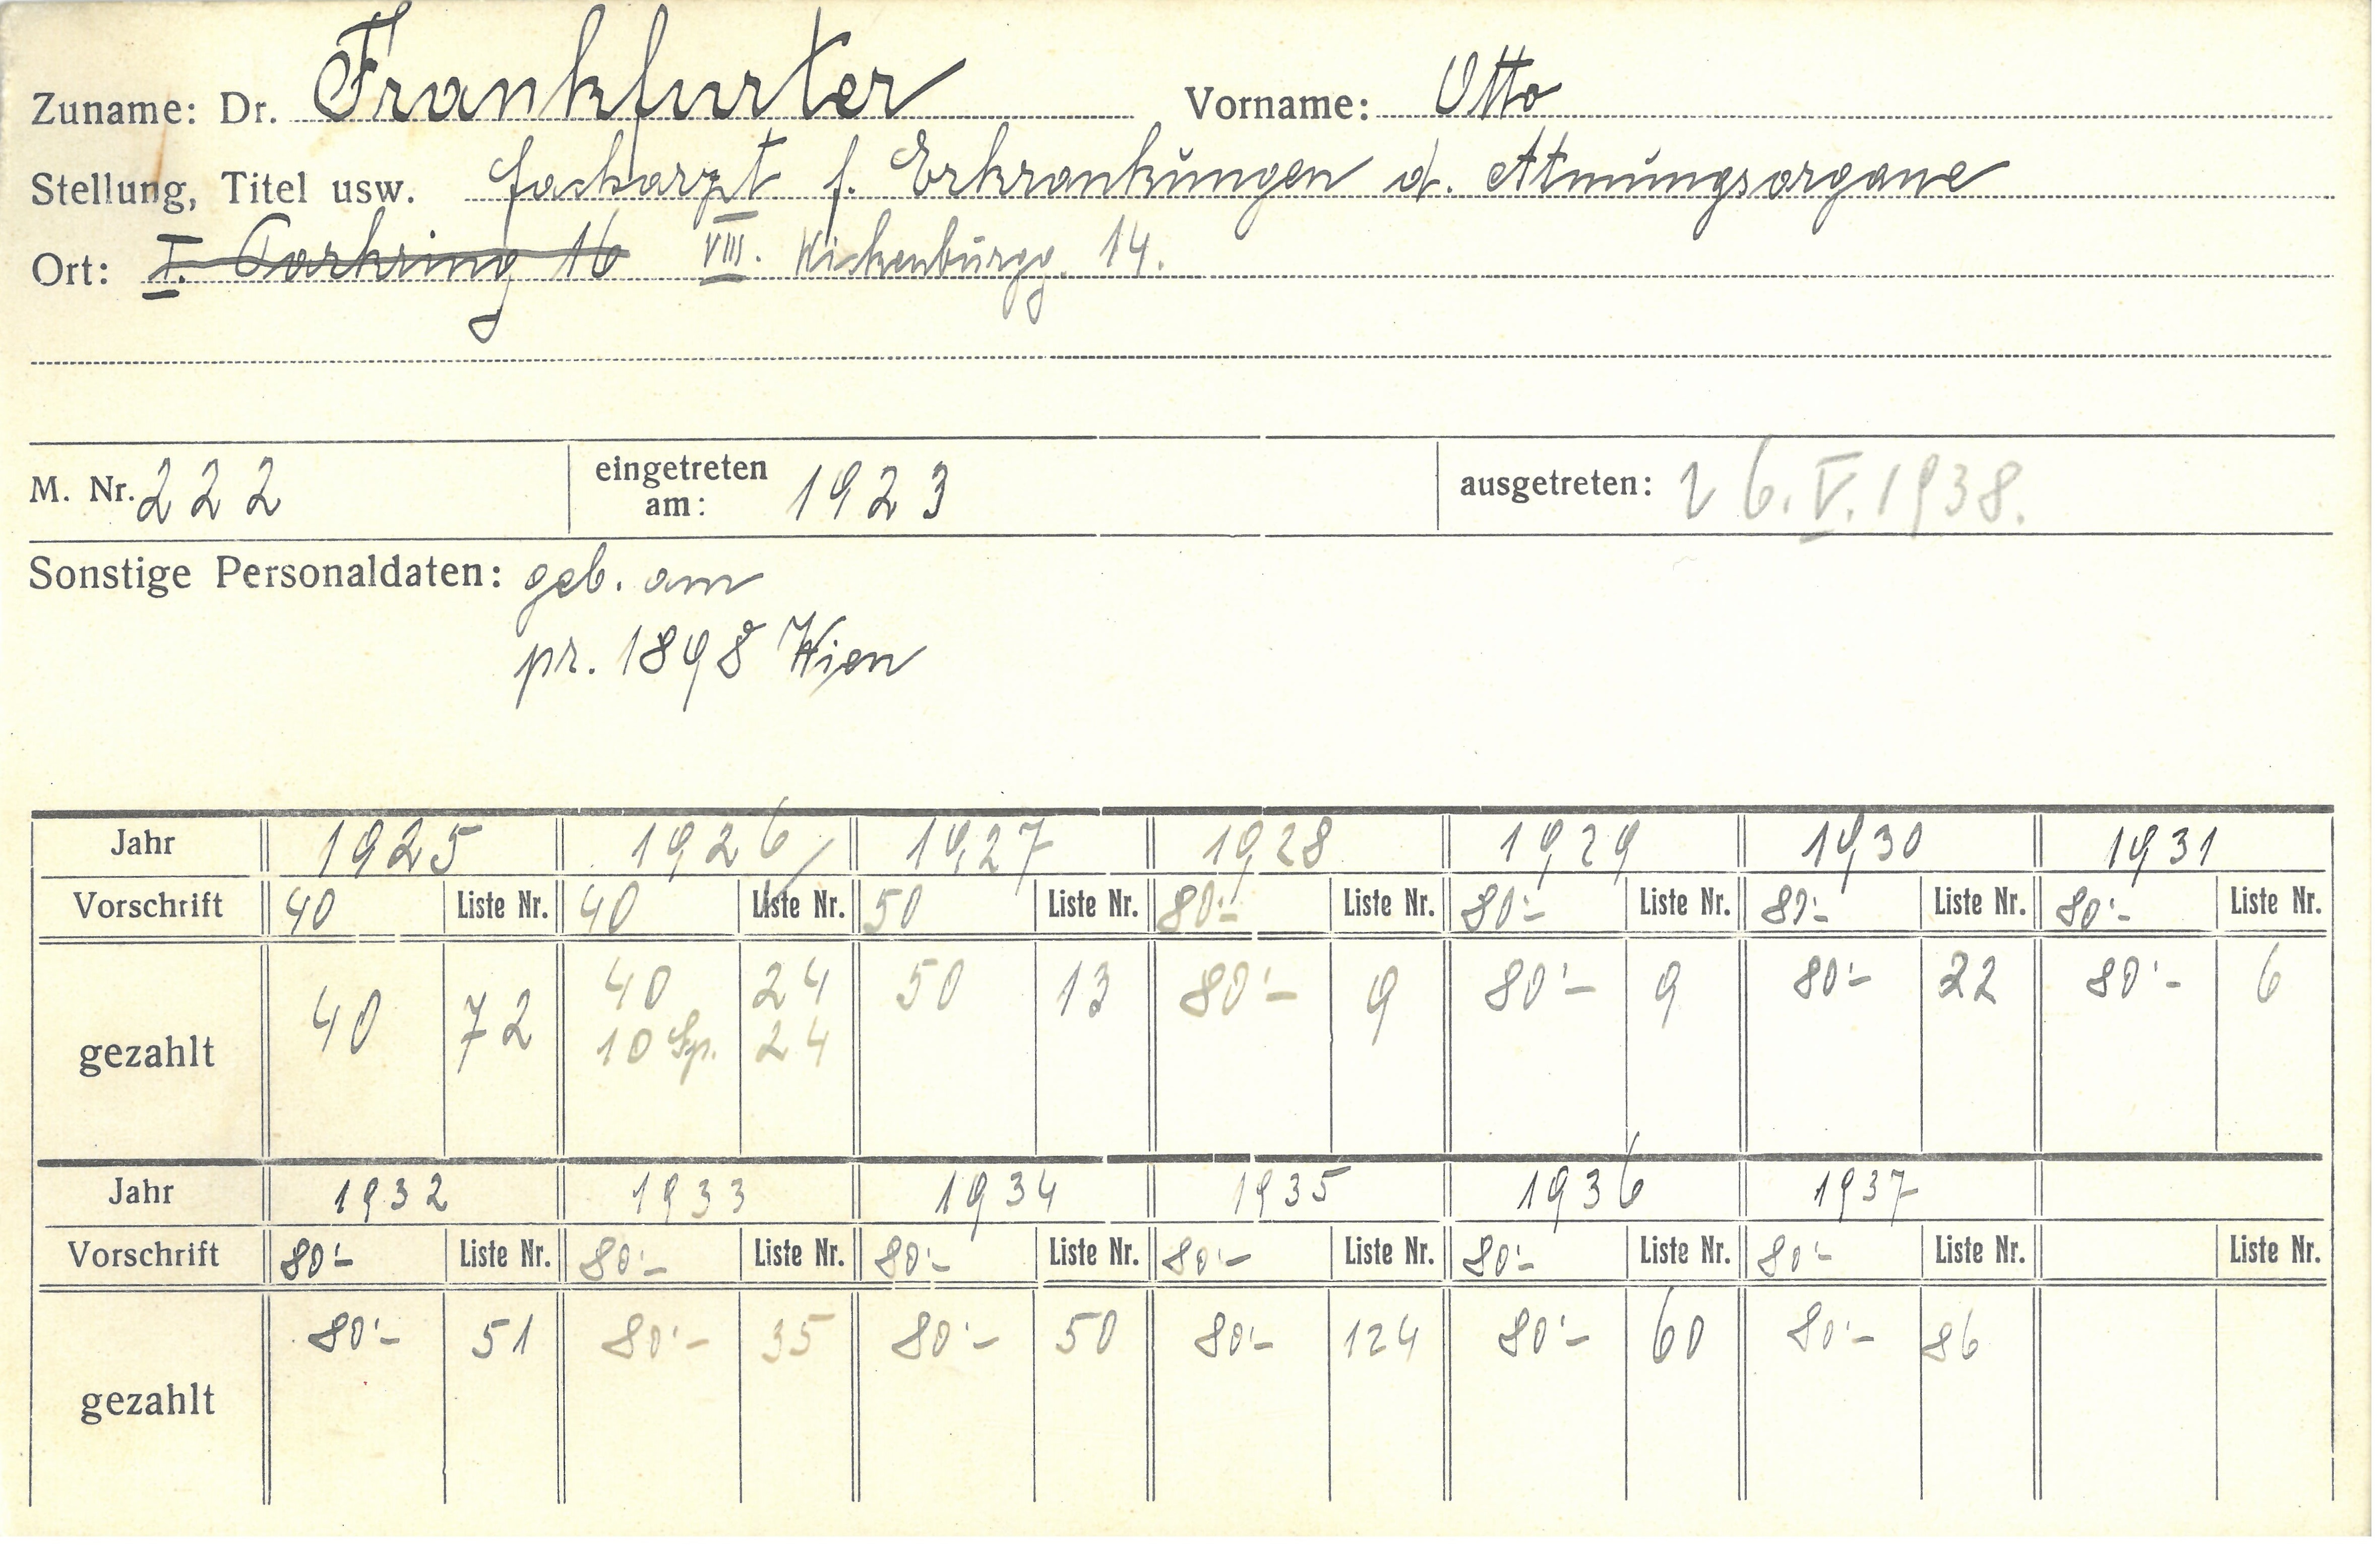 Zuname: Dr. Frankfurter Vorname: Otto
Stellung, Titel usw. Facharzt f. Erkrankungen d. Atmungsorgane
Ort: I. Parkring 16 VIII. Wickenburgg. 14.
M. Nr. 222 eingetreten am: 1923 ausgetreten: 26. V. 1938.
Sonstige Personaldaten: geb. am
pr. 1898 Wien
Jahr 1925 1926 1927 1928 1929 1930 1931
Vorschrift 40 Liste Nr. 40 Liste Nr. 50 Liste Nr. 80'- Liste Nr. 80'- Liste Nr. 80'- Liste Nr. 80'- Liste Nr.
gezahlt 40 72 40 24 50 13 80'- 9 80'- 9 80'- 22 80'- 6
10 Sp. 24
Jahr 1932 1933 1934 1935 1936 1937
Vorschrift 80'- Liste Nr. 80'- Liste Nr. 80'- Liste Nr. 80'- Liste Nr. 80'- Liste Nr. 80'- Liste Nr. Liste Nr.
gezahlt 80'- 51 80'- 35 80'- 50 80'- 124 80'- 60 80'- 86